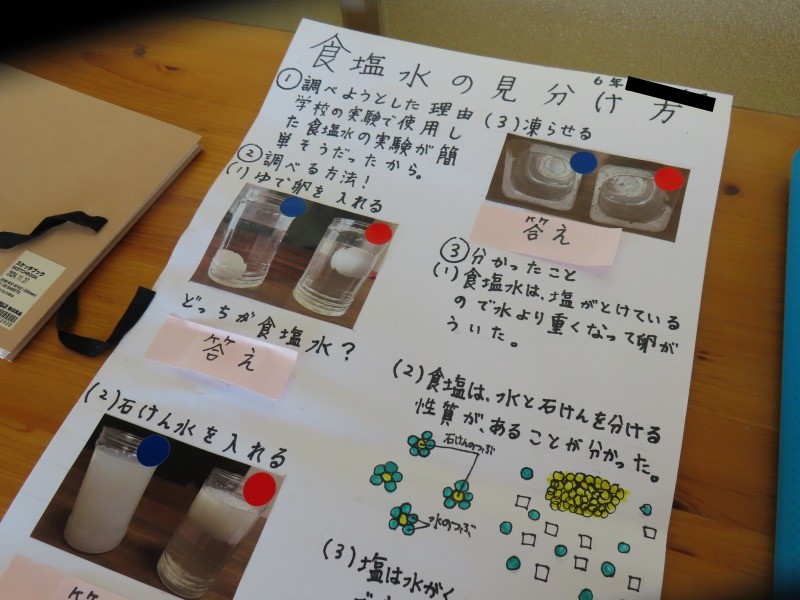 食塩水の見分け方
6年
①調べようとした理由
学校の実験で使用し
た食塩水の実験が簡
単そうだったから。
②調べる方法!
(1)ゆで卵を入れる
どっちが食塩水?
答え
(2)石けん水を入れる
答え
(3)凍らせる
答え
③分かったこと
(1)食塩水は、塩がとけている
ので水より重くなって卵が
ういた。
(2)食塩は、水と石けんを分ける
性質が、あることが分かった。
石けんのつぶ
水のつぶ
(3)塩は水がく
スケッチブック
SKETCHBOOK